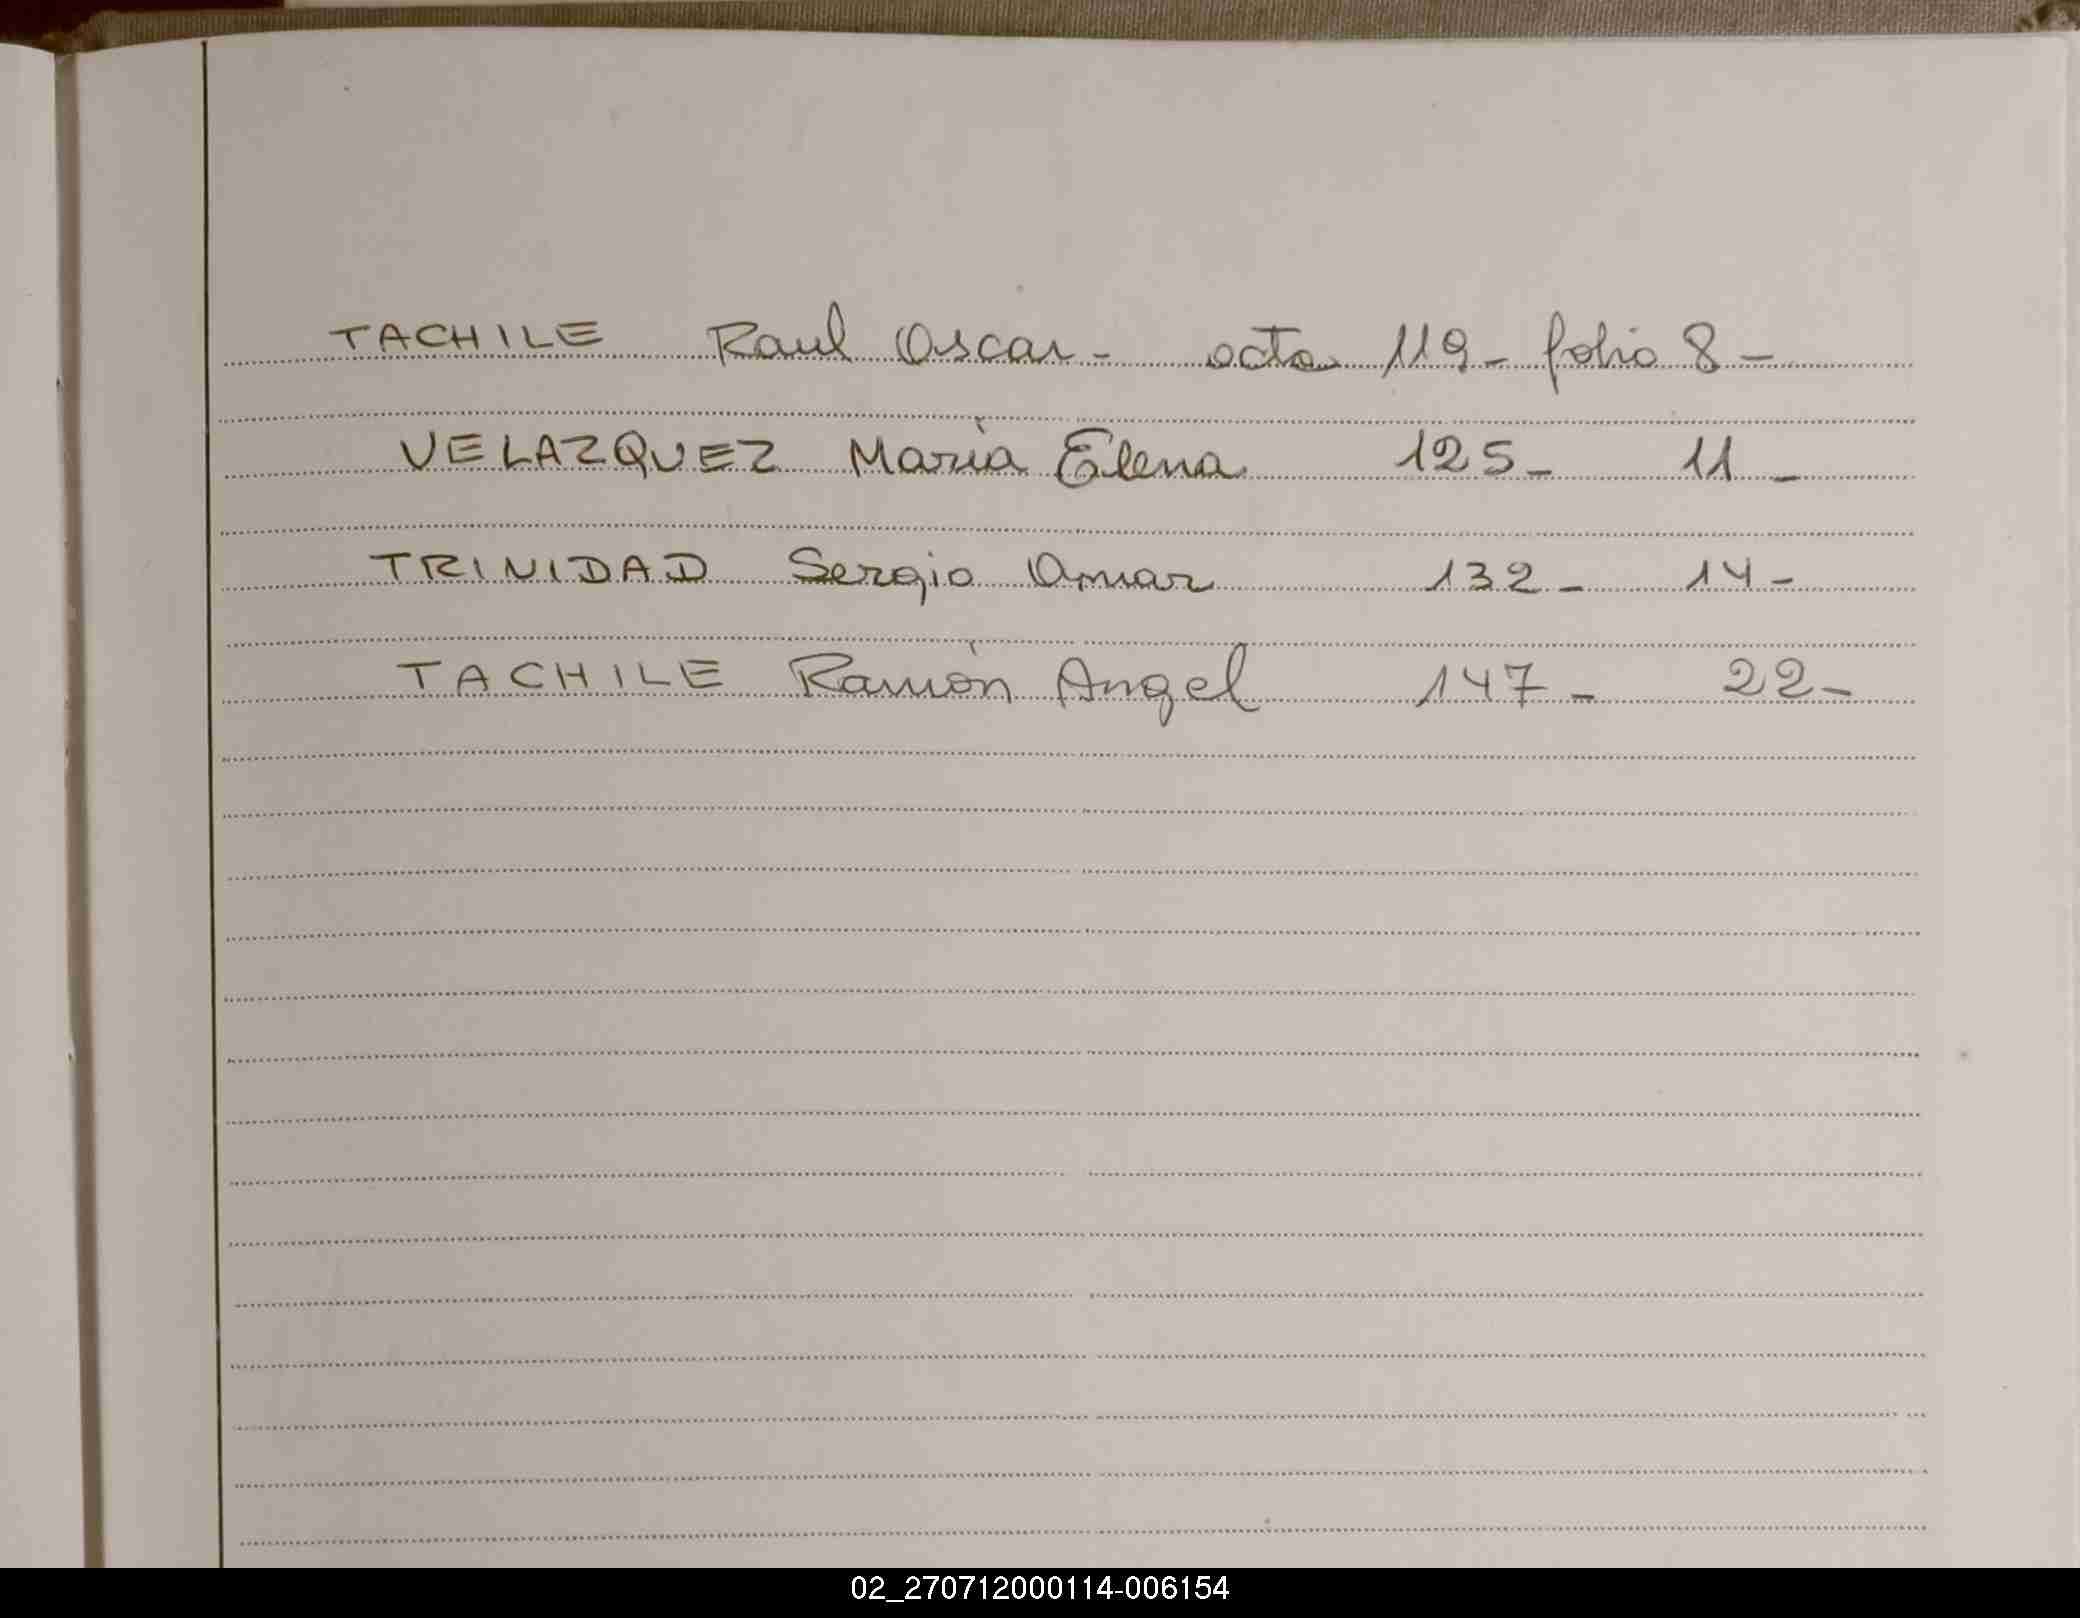 TACHILE Raul Oscar - acta 119 - folio 8 -
VELAZQUEZ María Elena 125 - 11 -
TRINIDAD Sergio Omar 132 - 14 -
TACHILE Ramón Angel 147 - 22 -
02_270712000114-006154